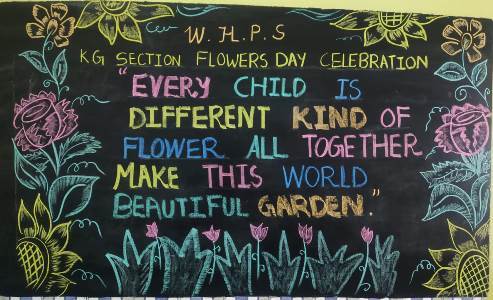 W.H.P.S
KG SECTION FLOWERS DAY CELEBRATION
"EVERY CHILD IS
DIFFERENT KIND OF
FLOWER ALL TOGETHER
MAKE THIS WORLD
BEAUTIFUL GARDEN."